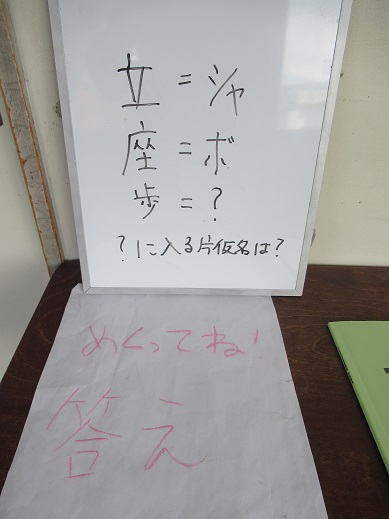 立=シャ
座=ボ
歩=?
?に入る片仮名は?
めくってね!
答え